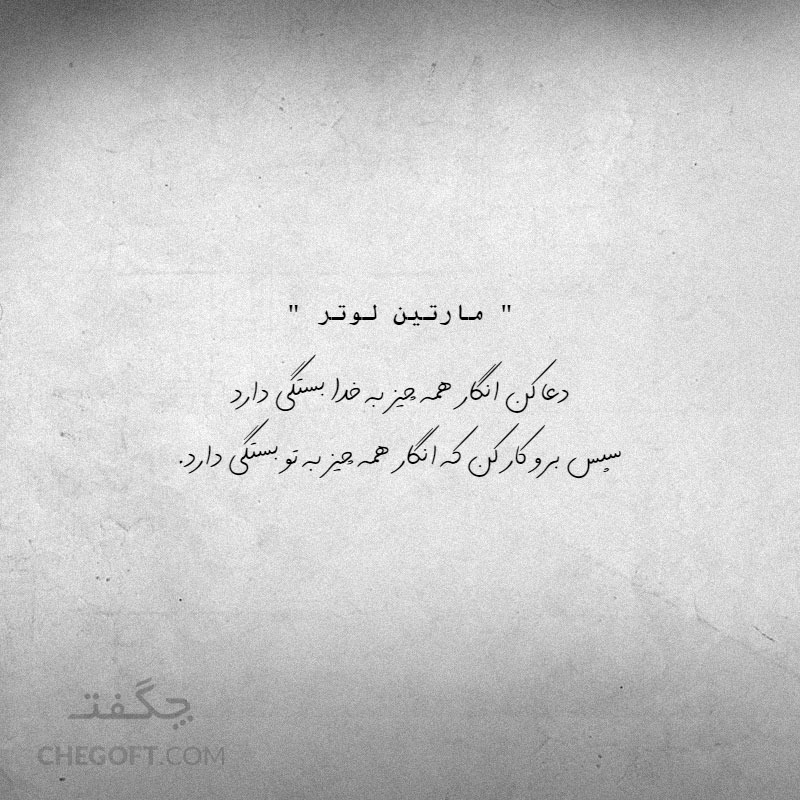 " مارتین لوتر "
دعا کن انگار همه چیز به خدا بستگی دارد
سپس برو کار کن که انگار همه چیز به تو بستگی دارد.
چگفت
CHEGOFT.COM